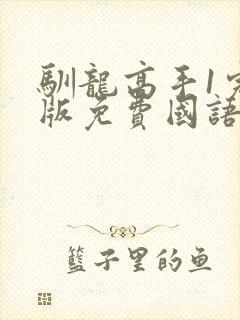 馴龍高手1完
版免費國語
籃子里的鱼